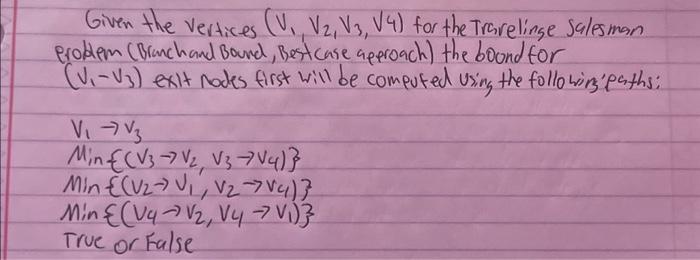 Given the vertices (V1, V2, V3, V4) for the Travelinge Salesman
problem (Branch and Bound, Best case approach) the bound for
(V1-V3) exit nodes first will be computed using the following paths:
V1 → V3
Min {(V3 → V2, V3 → V4)}
Min {(V2 → V1, V2 → V4)}
Min {(V4 → V2, V4 → V1)}
True or False